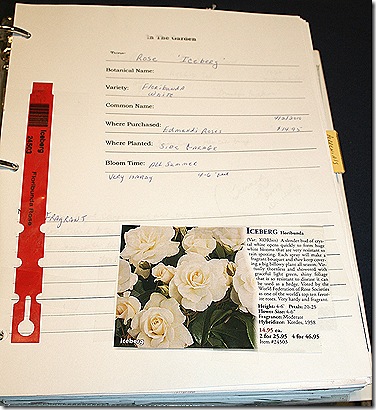 In The Garden
Name: Rose 'Iceberg'
Botanical Name:
Variety: Floribunda
White
Common Name:
Where Purchased: Edmunds Roses $14.95
Where Planted: Side Garage
Bloom Time: All Summer
Very Hardy
Fragrant
Iceberg
24503
Floribunda Rose
Iceberg
ICEBERG Floribunda
(Var. KORbin) A slender bud of crys-
tal white opens quickly to form huge
white blooms that are very resistant to
rain spotting. Each spray will make a
fragrant bouquet and they keep cover-
ing a big billowy plant all season. Vir-
tually thornless and showered with
graceful light green, shiny foliage
that is so resistant to disease it can
be used as a hedge. Voted by the
World Federation of Rose Societies
as one of the world's top ten favor-
ite roses. Very hardy and fragrant.
Height: 4-6' Petals: 20-25
Flower Size: 4-6"
Fragrance: Moderate
Hybridizer: Kordes, 1958
14.95 ea.
2 for 25.95 4 for 46.95
Item #24503